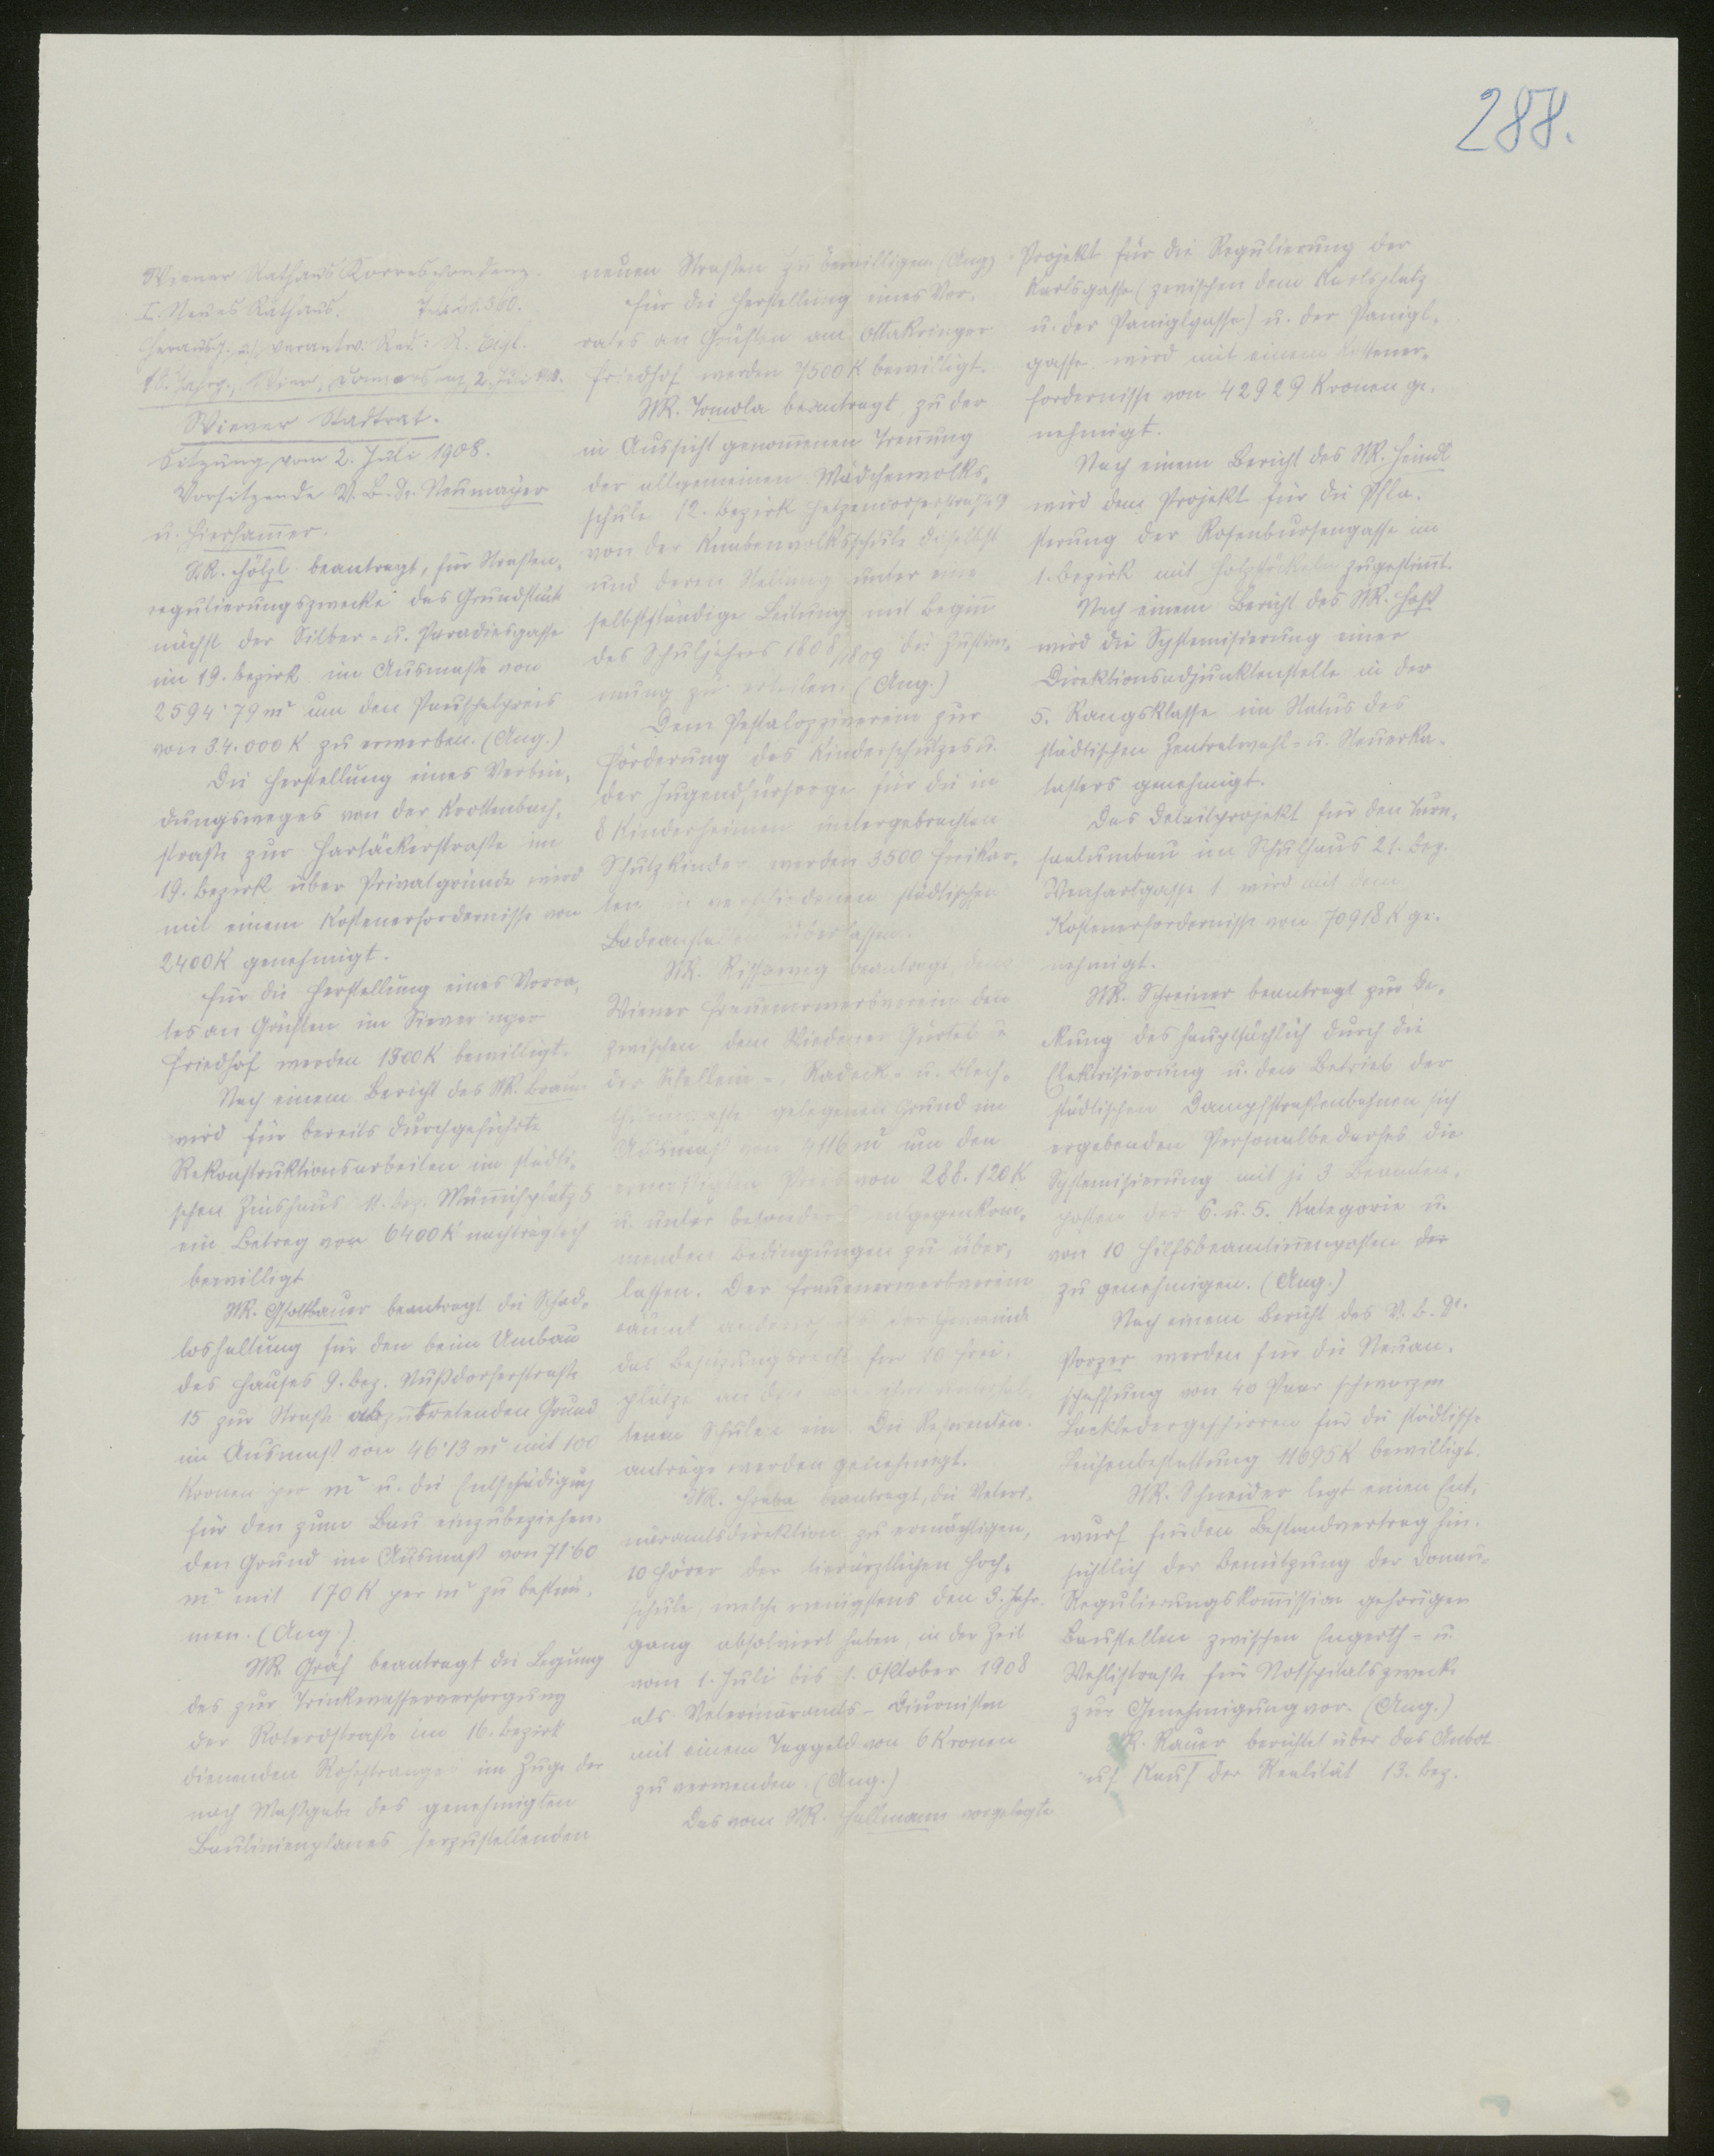 288.
Wiener Rathaus Korrespondenz.
I. Neues Rathaus. Tel. 21.360.
Herausg. u. verantw. Red.: R. Eigl.
18. Jahrg., Wien, Donnerstag, 2. Juli 1908.
Wiener Stadtrat.
Sitzung vom 2. Juli 1908.
Vorsitzende V.B. Dr. Neumayer
u. Hierhammer.
StR. Hölzl beantragt, für Straßen-
regulierungszwecke das Grundstück
nächst der Silber- u. Paradiesgasse
im 19. Bezirk im Ausmaße von
2594·79 m² um den Pauschalpreis
von 34.000 K zu erwerben. (Ang.)
Die Herstellung eines Verbin-
dungsweges von der Krottenbach-
straße zur Hartäckerstraße im
19. Bezirk über Privatgründe wird
mit einem Kostenerfordernisse von
2400 K genehmigt.
Für die Herstellung eines Vorra-
tes an Grüften im Sieveringer
Friedhof werden 1300 K bewilligt.
Nach einem Bericht des StR. Braun
wird für bereits durchgeführte
Rekonstruktionsarbeiten im städti-
schen Zinshaus 11. Bez. Münnichplatz 5
ein Betrag von 6400 K nachträglich
bewilligt
StR. Gsottbauer beantragt die Schad-
loshaltung für den beim Umbau
des Hauses 9. Bez. Nußdorferstraße
15 zur Straße abzutretenden Grund
im Ausmaß von 46·13 m² mit 100
Kronen per m² u. die Entschädigung
für den zum Bau einzubeziehen-
den Grund im Ausmaß von 71·60
m² mit 170 K per m² zu bestim-
men. (Ang.)
StR. Gräf beantragt die Legung
des zur Trinkwasserversorgung
der Roterdstraße im 16. Bezirk
dienenden Rohrstranges im Zuge der
nach Maßgabe des genehmigten
Baulinienplanes herzustellenden
neuen Straßen zu bewilligen. (Ang.)
Für die Herstellung eines Vor-
rates an Grüften am Ottakringer
Friedhof werden 7500 K bewilligt.
StR. Tomola beantragt, zu der
in Aussicht genommenen Trennung
der allgemeinen Mädchenvolks-
schule 12. Bezirk Hetzendorferstraße
von der Knabenvolksschule daselbst
und deren Stellung unter eine
selbstständige Leitung mit Beginn
des Schuljahres 1908/1909 die Zustim-
mung zu erteilen. (Ang.)
Dem Pestalozziverein zur
Förderung des Kinderschutzes u.
der Jugendfürsorge für die in
8 Kinderheimen untergebrachten
Schutzkinder werden 3500 Freikar-
ten in verschiedenen städtischen
Badeanstalten überlassen.
StR. Rissaweg beantragt, dem
Wiener Frauenerwerbverein den
zwischen dem Wiedener Gürtel u
der Schellein-, Radeck- u. Blech-
thurmgasse gelegenen Grund im
Ausmaß von 4116 m² um den
ermäßigten Preis von 288.120 K
u. unter besonders entgegenkom-
menden Bedingungen zu über-
lassen. Der Frauenerwerbverein
räumt anderseits der Gemeinde
das Besetzungsrecht für 10 Frei-
plätze an den von ihm erhal-
tenen Schulen ein. Die Referenten-
anträge werden genehmigt.
StR. Hraba beantragt, die Veteri-
näramtsdirektion zu ermächtigen,
10 Hörer der tierärztlichen Hoch-
schule, welche wenigstens den 3. Jahr-
gang absolviert haben, in der Zeit
vom 1. Juli bis 1. Oktober 1908
als Veterinäramts-Diurnisten
mit einem Taggeld von 6 Kronen
zu verwenden. (Ang.)
Das vom StR. Hallmann vorgelegte
Projekt für die Regulierung der
Karlsgasse (zwischen dem Karlsplatz
u. der Paniglgasse) u. der Panigl-
gasse wird mit einem Kostener-
fordernisse von 42929 Kronen ge-
nehmigt.
Nach einem Bericht des StR. Heindl
wird dem Projekt für die Pfla-
sterung der Rosenbursengasse im
1. Bezirk mit Holzstöckeln zugestimmt.
Nach einem Bericht des StR. Hoß
wird die Systemisierung einer
Direktionsadjunktenstelle in der
5. Rangsklasse im Status des
städtischen Zentralwahl- u. Steuerka-
tasters genehmigt.
Das Detailprojekt für den Turn-
saalumbau im Schulhaus 21. Bez.
Wenhartgasse 1 wird mit dem
Kostenerfordernisse von 70918 K ge-
nehmigt.
StR. Schreiner beantragt zur De-
ckung des hauptsächlich durch die
Elektrisierung u. den Betrieb der
städtischen Dampfstraßenbahnen sich
ergebenden Personalbedarfes die
Systemisierung mit je 3 Beamten-
posten der 6. u. 5. Kategorie u.
von 10 Hilfsbeamtinnenposten der
zu genehmigen. (Ang.)
Nach einem Bericht des V.B. Dr.
Porzer werden für die Neuan-
schaffung von 40 Paar schwarzen
Lackledergeschirren für die städtische
Leichenbestattung 11695 K bewilligt.
StR. Schneider legt einen Ent-
wurf für den Bestandvertrag hin-
sichtlich der Benützung der Donau-
Regulierungskommission gehörigen
Baustellen zwischen Engerth- u.
Wehlistraße für Notspitalszwecke
zur Genehmigung vor. (Ang.)
StR. Rauer berichtet über das Anbot
auf Kauf der Realität 13. Bez.